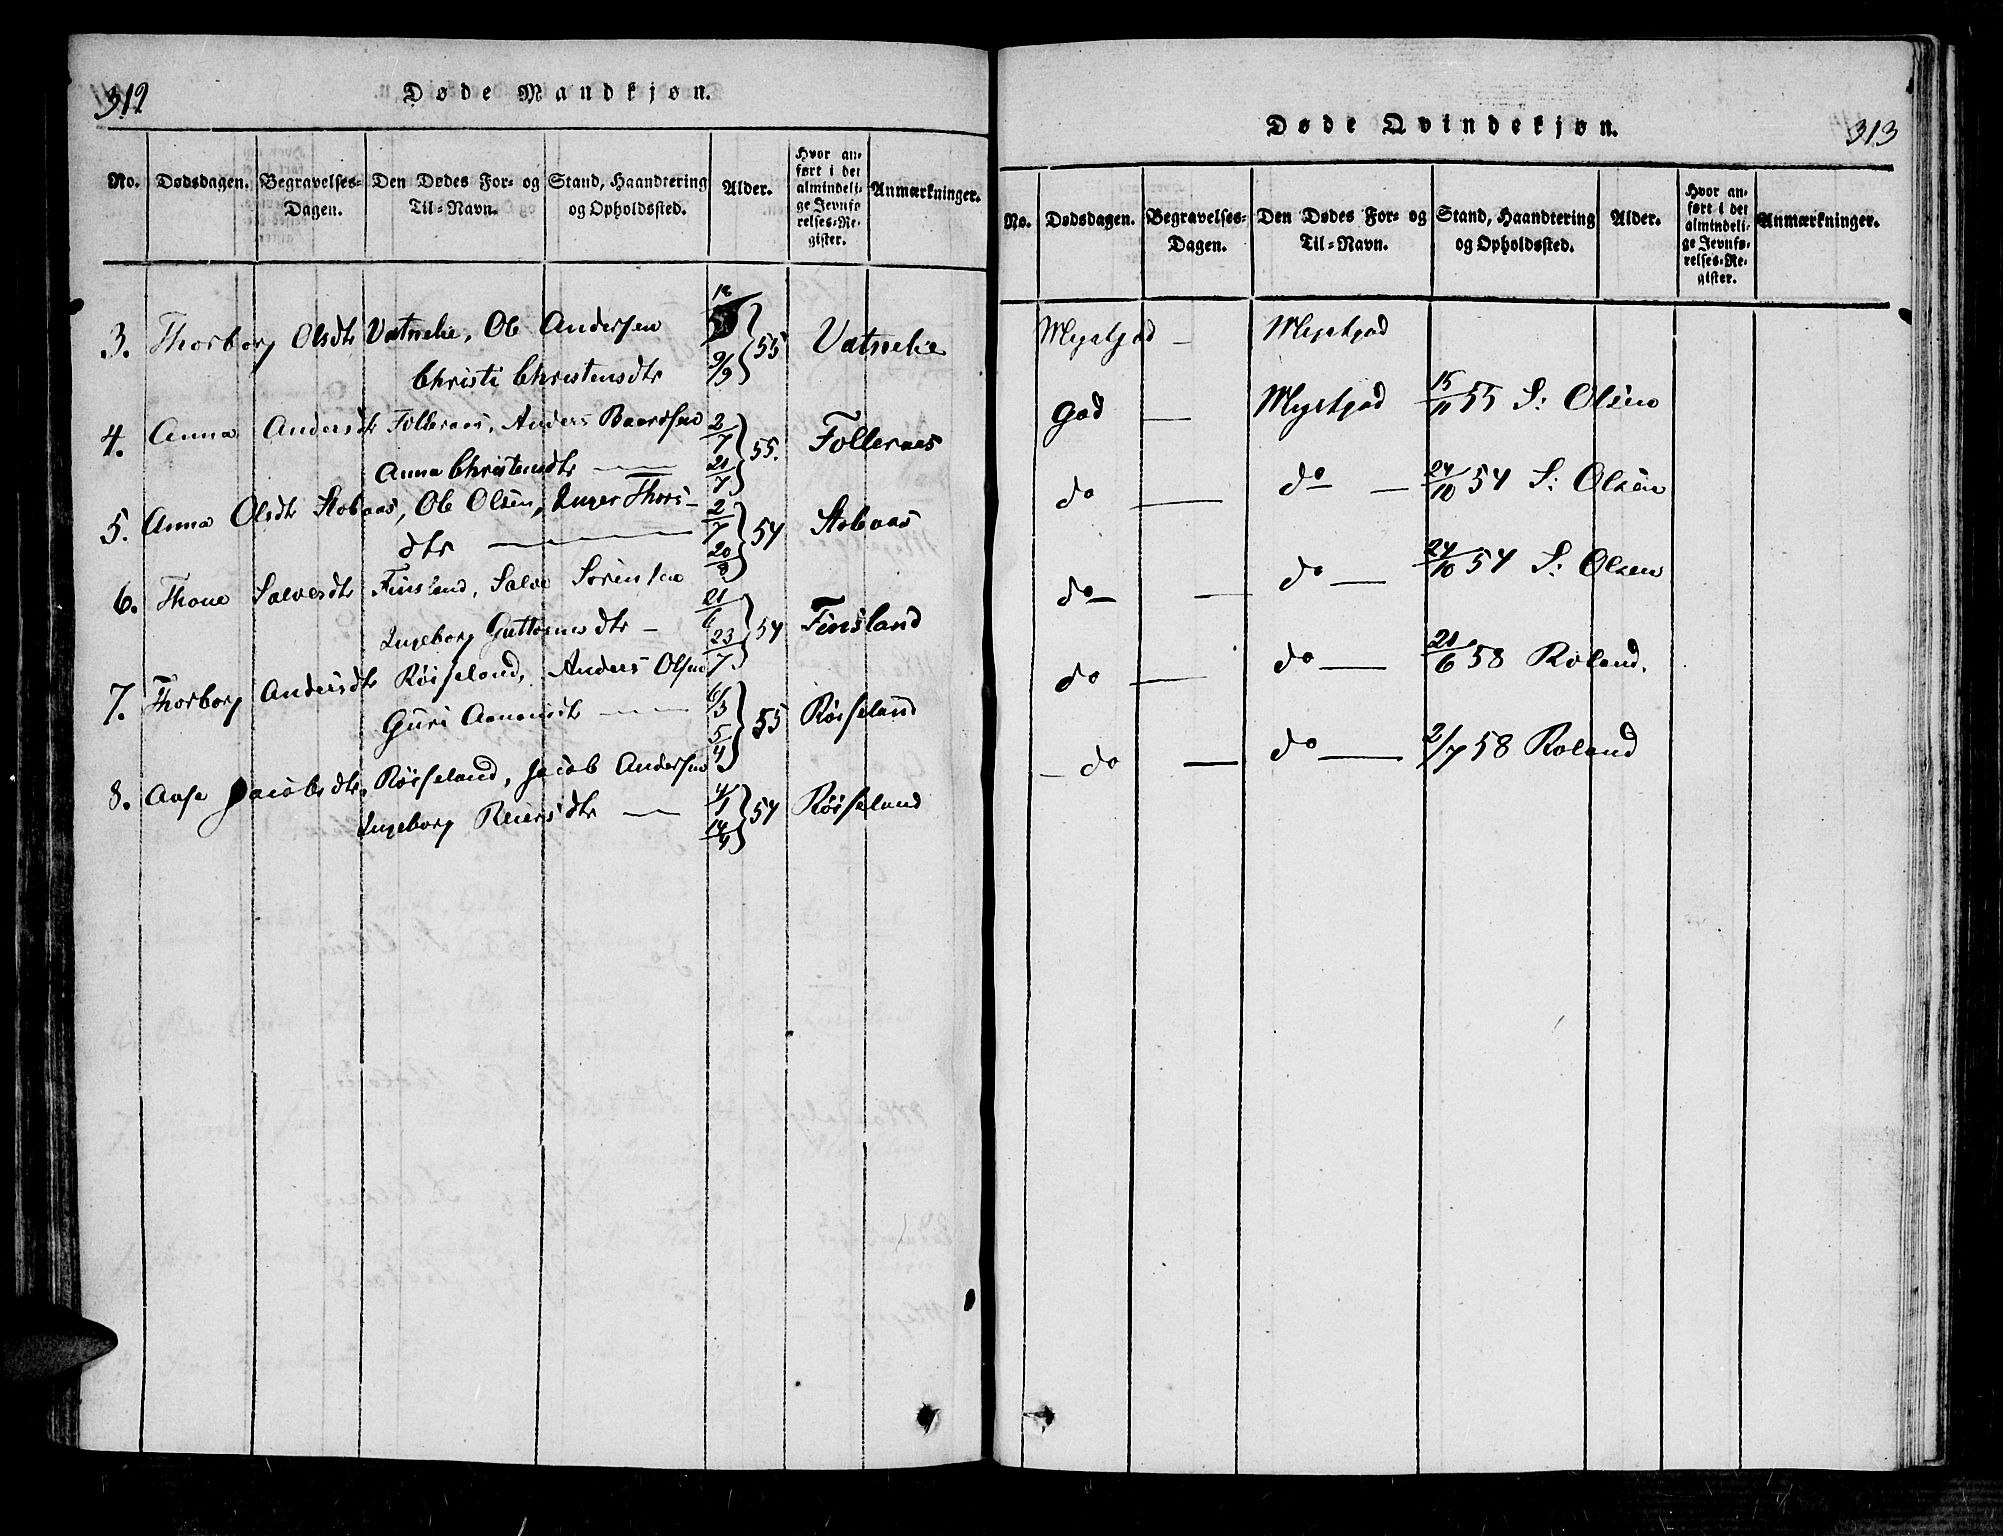 312
Døde Mandkjøn.
No. Dødsdagen. Begravelses-Dagen. Den Dødes For- og Til-Navn. Stand, Haandtering og Opholdssted. Alder. Hvor anført i det almindelige Jevnførelses-Register. Anmærkninger.
3. Thorborg Olsdtr Vatnelie, Ole Andersen 55 Vatnelie
Christi Christensdtr 9/9
4. Anna Andersdtr Folleraas, Anders Baardsen 2/7 55. Folleraas
Anna Christensdtr 21/7
5. Anna Olsdtr Stobaas, Ole Olsen, Inger Thors- 2/7 54 Stobaas
dtr 20/8
6. Thone Salvesdtr Finsland, Salve Sørensen 21/6 54 Finsland
Ingeborg Guttormsdtr - 23/7
7. Thorborg Andersdtr Røiseland, Anders Olsen 6/3 55 Røiseland
Guri Aanensdtr 5/4
8. Aase Jacobsdtr, Røiseland, Jacob Andersen 4/1 54 Røiseland
Ingeborg Reiersdtr 14/4
313
Døde Qvindekjøn.
No. Dødsdagen. Begravelses-Dagen. Den Dødes For- og Til-Navn. Stand, Haandtering og Opholdssted. Alder. Hvor anført i det almindelige Jevnførelses-Register. Anmærkninger.
Megetgod - Megetgod
God — Megetgod 15/11 55 S: Olsen
do — do — 24/10 54 S: Olsen
do — do — 24/10 54 S: Olsen
do — do — 21/6 58 Roland.
do — do — 2/7 58 Roland